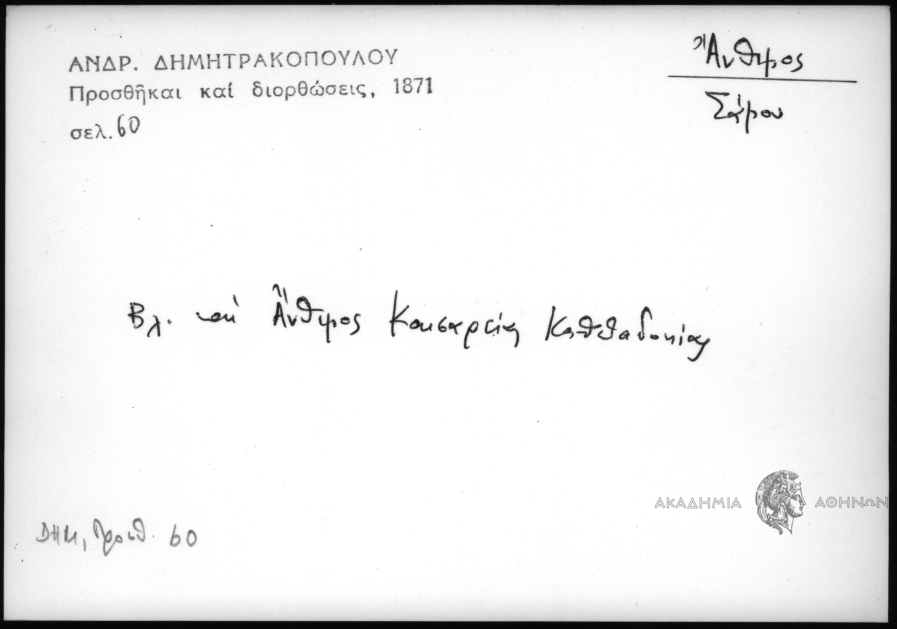 ΑΝΔΡ. ΔΗΜΗΤΡΑΚΟΠΟΥΛΟΥ
Προσθῆκαι καί διορθώσεις, 1871
σελ. 60
Ἄνθιμος
Σάμου
Βλ. καὶ Ἄνθιμος Καισαρείας Καππαδοκίας
ΑΚΑΔΗΜΙΑ ΑΘΗΝΩΝ
ΔΗΜ, Προσθ. 60